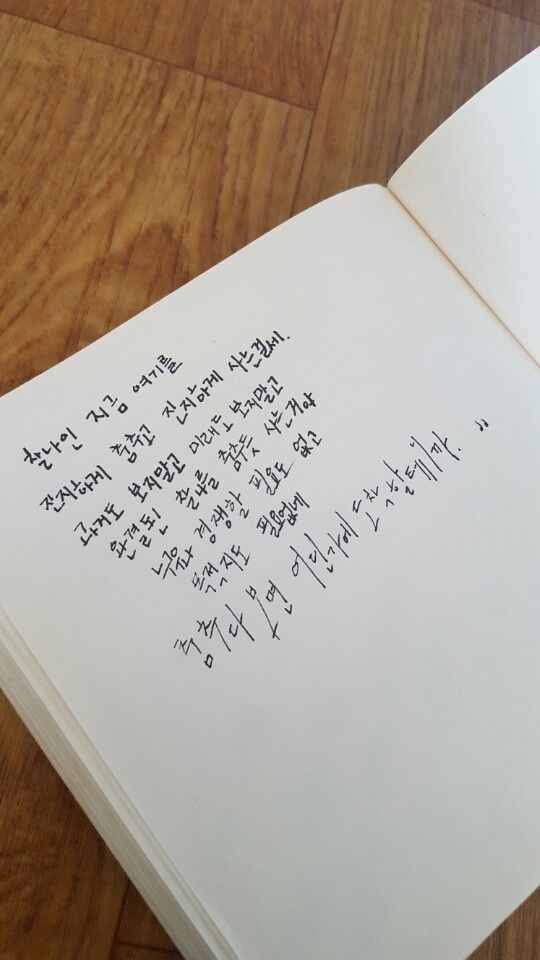 찰나인 지금 여기를
진지하게 춤추고 진지하게 사는걸세.
과거도 보지말고 미래도 보지말고
완결된 찰나를 춤추듯 사는거야
누구와 경쟁할 필요도 없고
목적지도 필요없네
춤추다 보면 어딘가에 도착할테니까. "